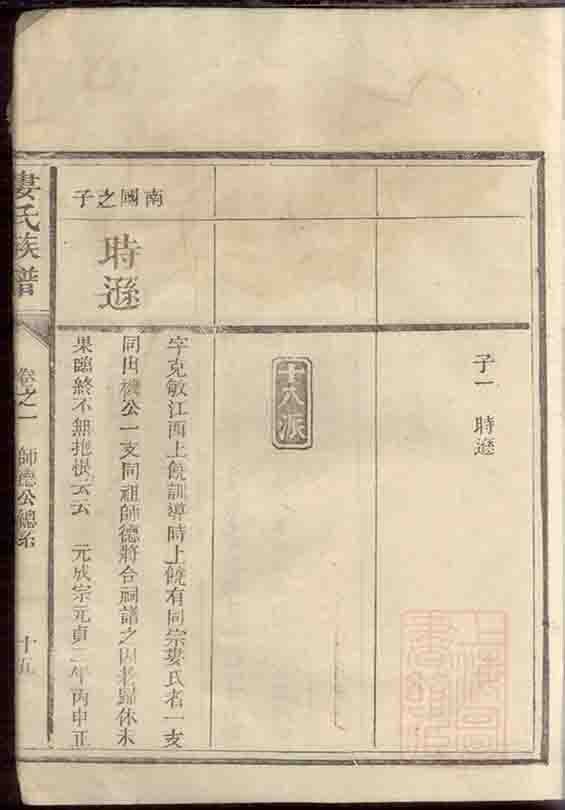 子一 時遜
十八派
南國之子
時遜
字克敏江西上饒訓導時上饒有同宗婁氏者一支
同出機公一支同祖師德將合祠譜之因老歸休未
果臨終不無抱恨云云 元成宗元貞二年丙申正
婁氏族譜
卷之一 師德公總系
十五